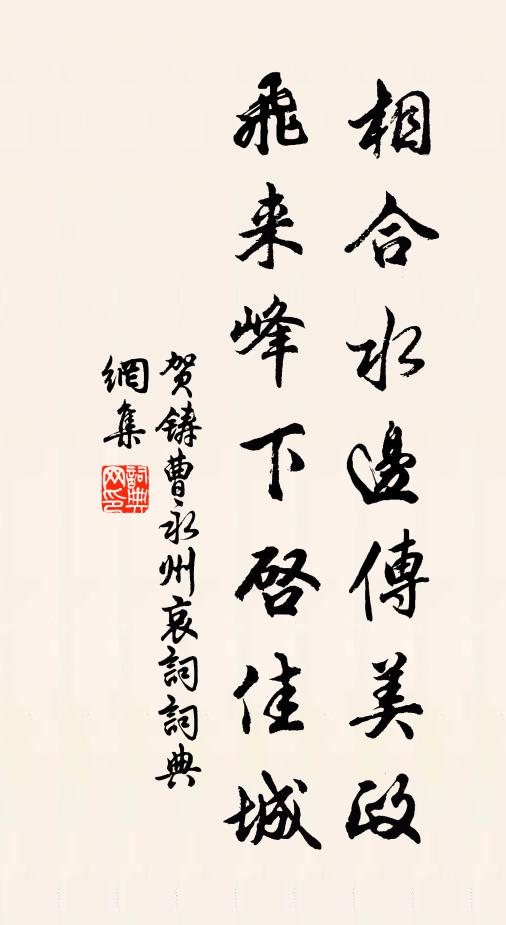 相合水邊傳美政
飛来峰下啓佳城
贺鑄曹永州哀詞詞典
網集
詞典
网印